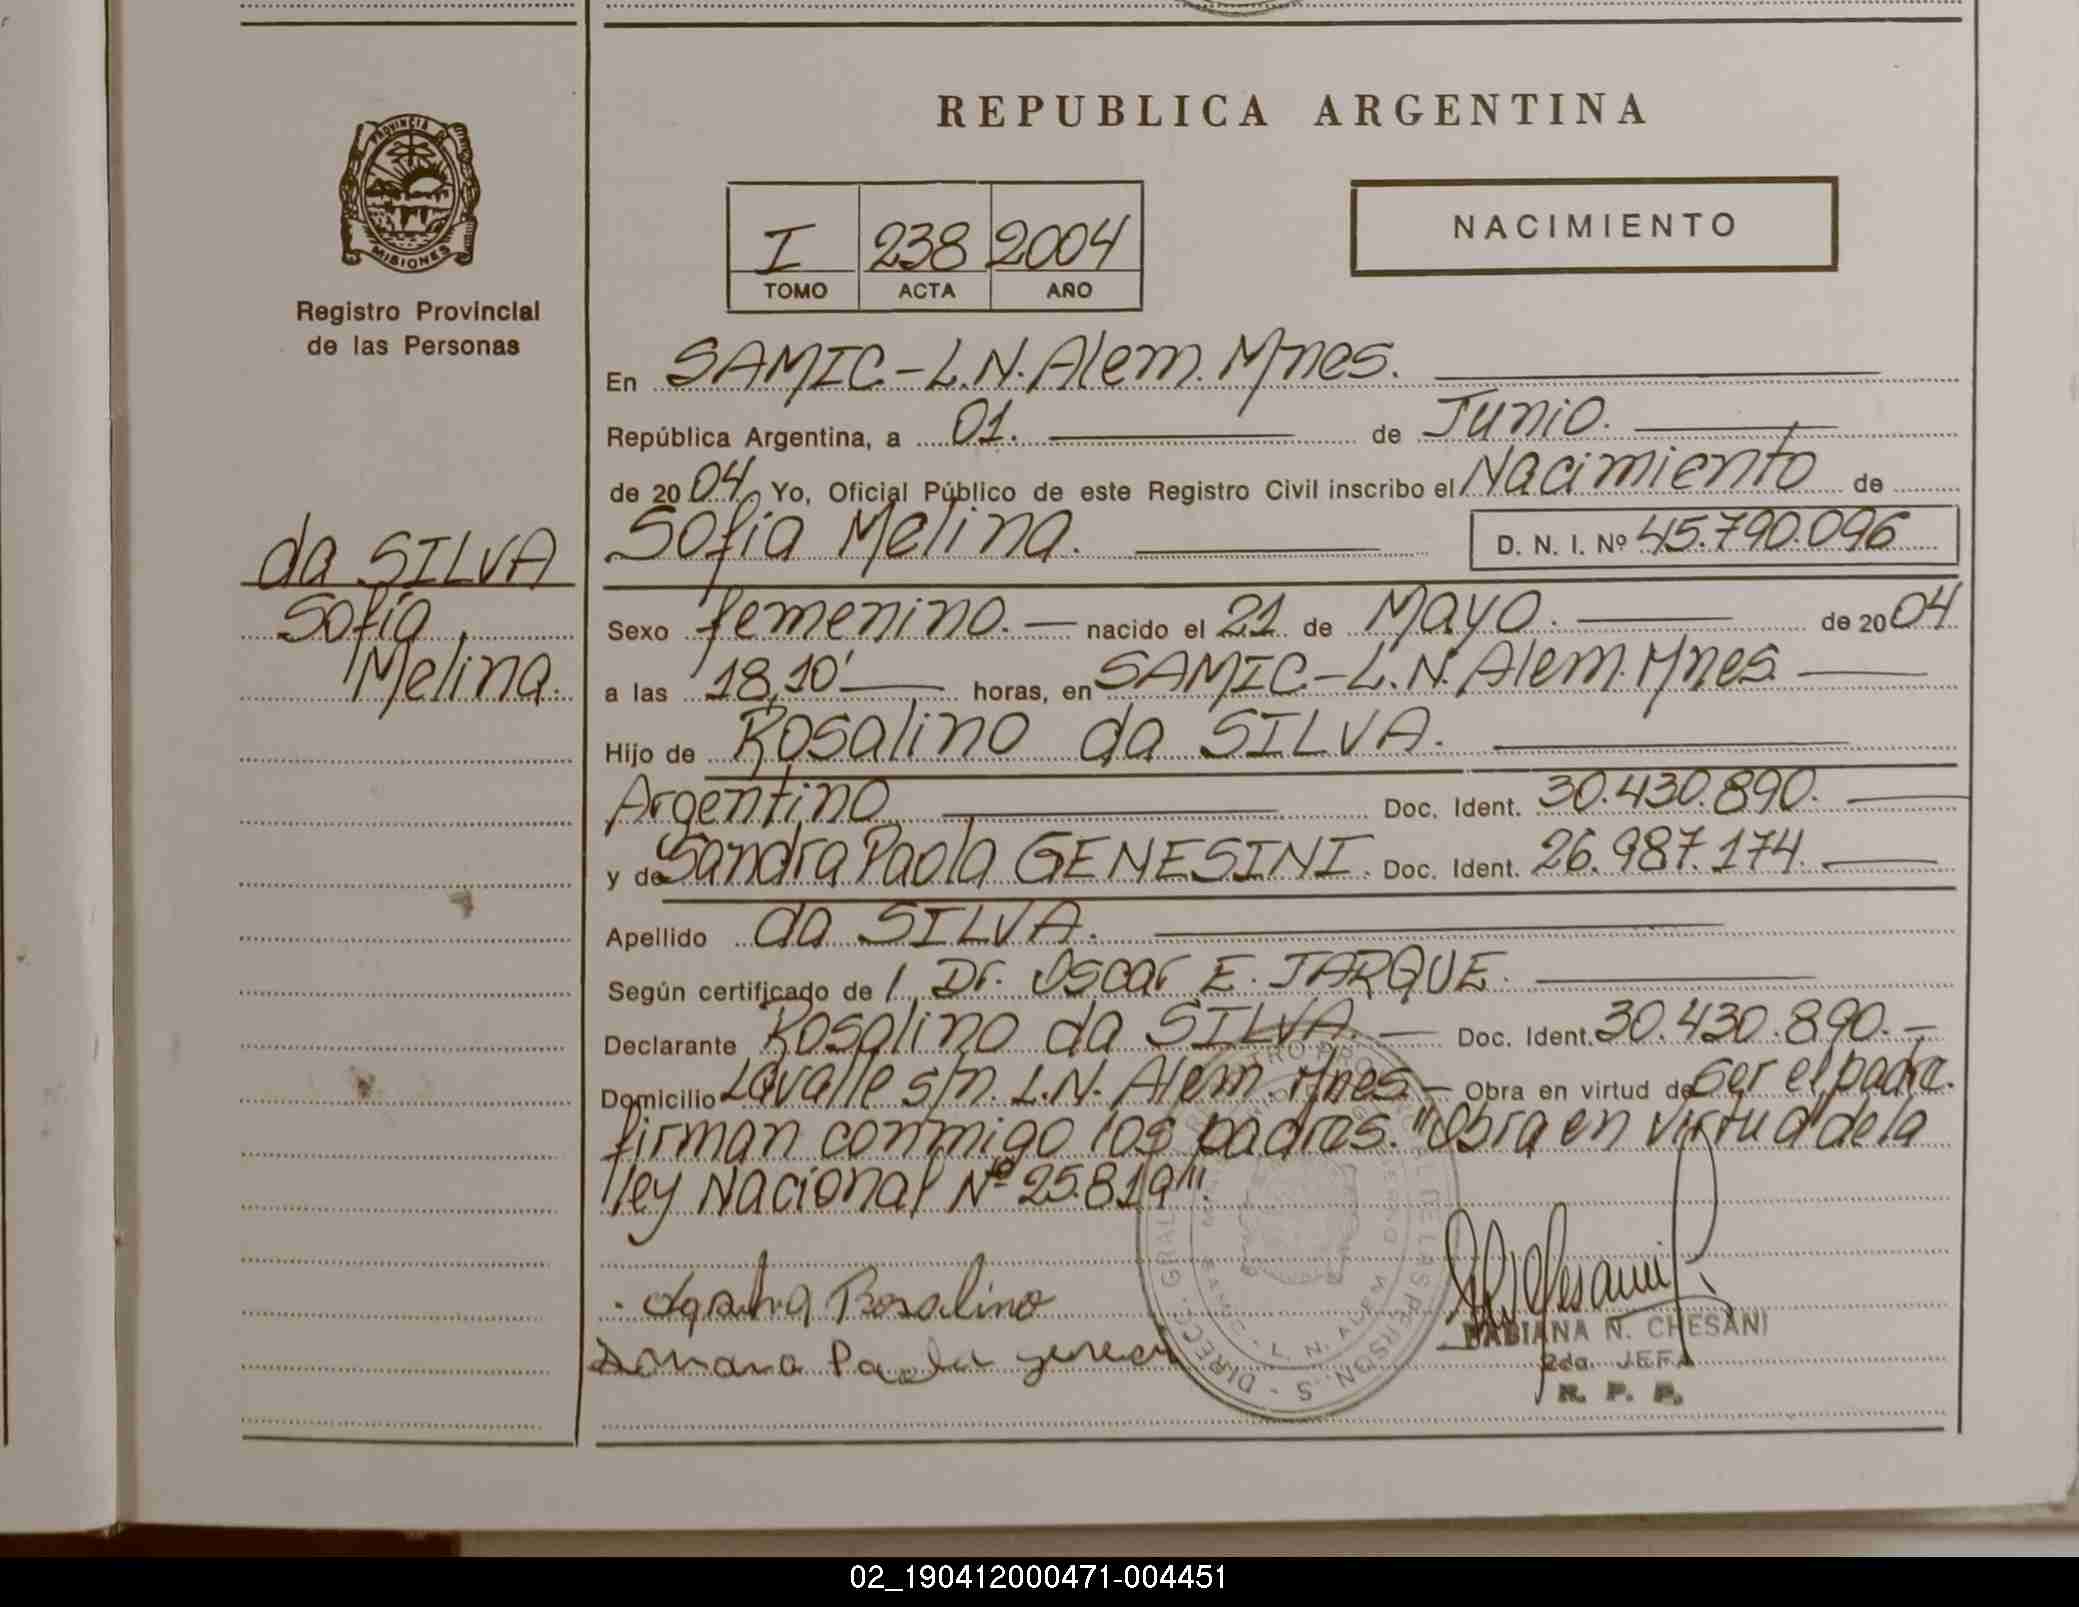 REPUBLICA ARGENTINA
PROVINCIA
MISIONES
Registro Provincial
de las Personas
I 238 2004
TOMO ACTA AÑO
NACIMIENTO
En SAMIC-L.N.Alem.Mnes.
República Argentina, a 01. de Junio.
de 2004, Yo, Oficial Público de este Registro Civil inscribo el Nacimiento de
Sofía Melina. D. N. I. Nº 45.790.096
da SILVA
Sofía
Melina.
Sexo femenino. nacido el 21 de Mayo. de 2004
a las 18,10' horas, en SAMIC-L.N.Alem.Mnes
Hijo de Rosalino da SILVA.
Argentino Doc. Ident. 30.430.890.
y de Sandra Paola GENESINI. Doc. Ident. 26.987.174.
Apellido da SILVA.
Según certificado de l Dr. Oscar E. JARQUE.
Declarante Rosalino da SILVA. Doc. Ident. 30.430.890.-
Domicilio Lavalle s/n. L.N. Alem. Mnes.- Obra en virtud de ser el padre.
firman conmigo los padres. "Obra en virtud de la
ley Nacional Nº 25.819".
Rosalino
Paola
FABIANA N. CHESANI
2da. JEFA
R. P. P.
02_190412000471-004451